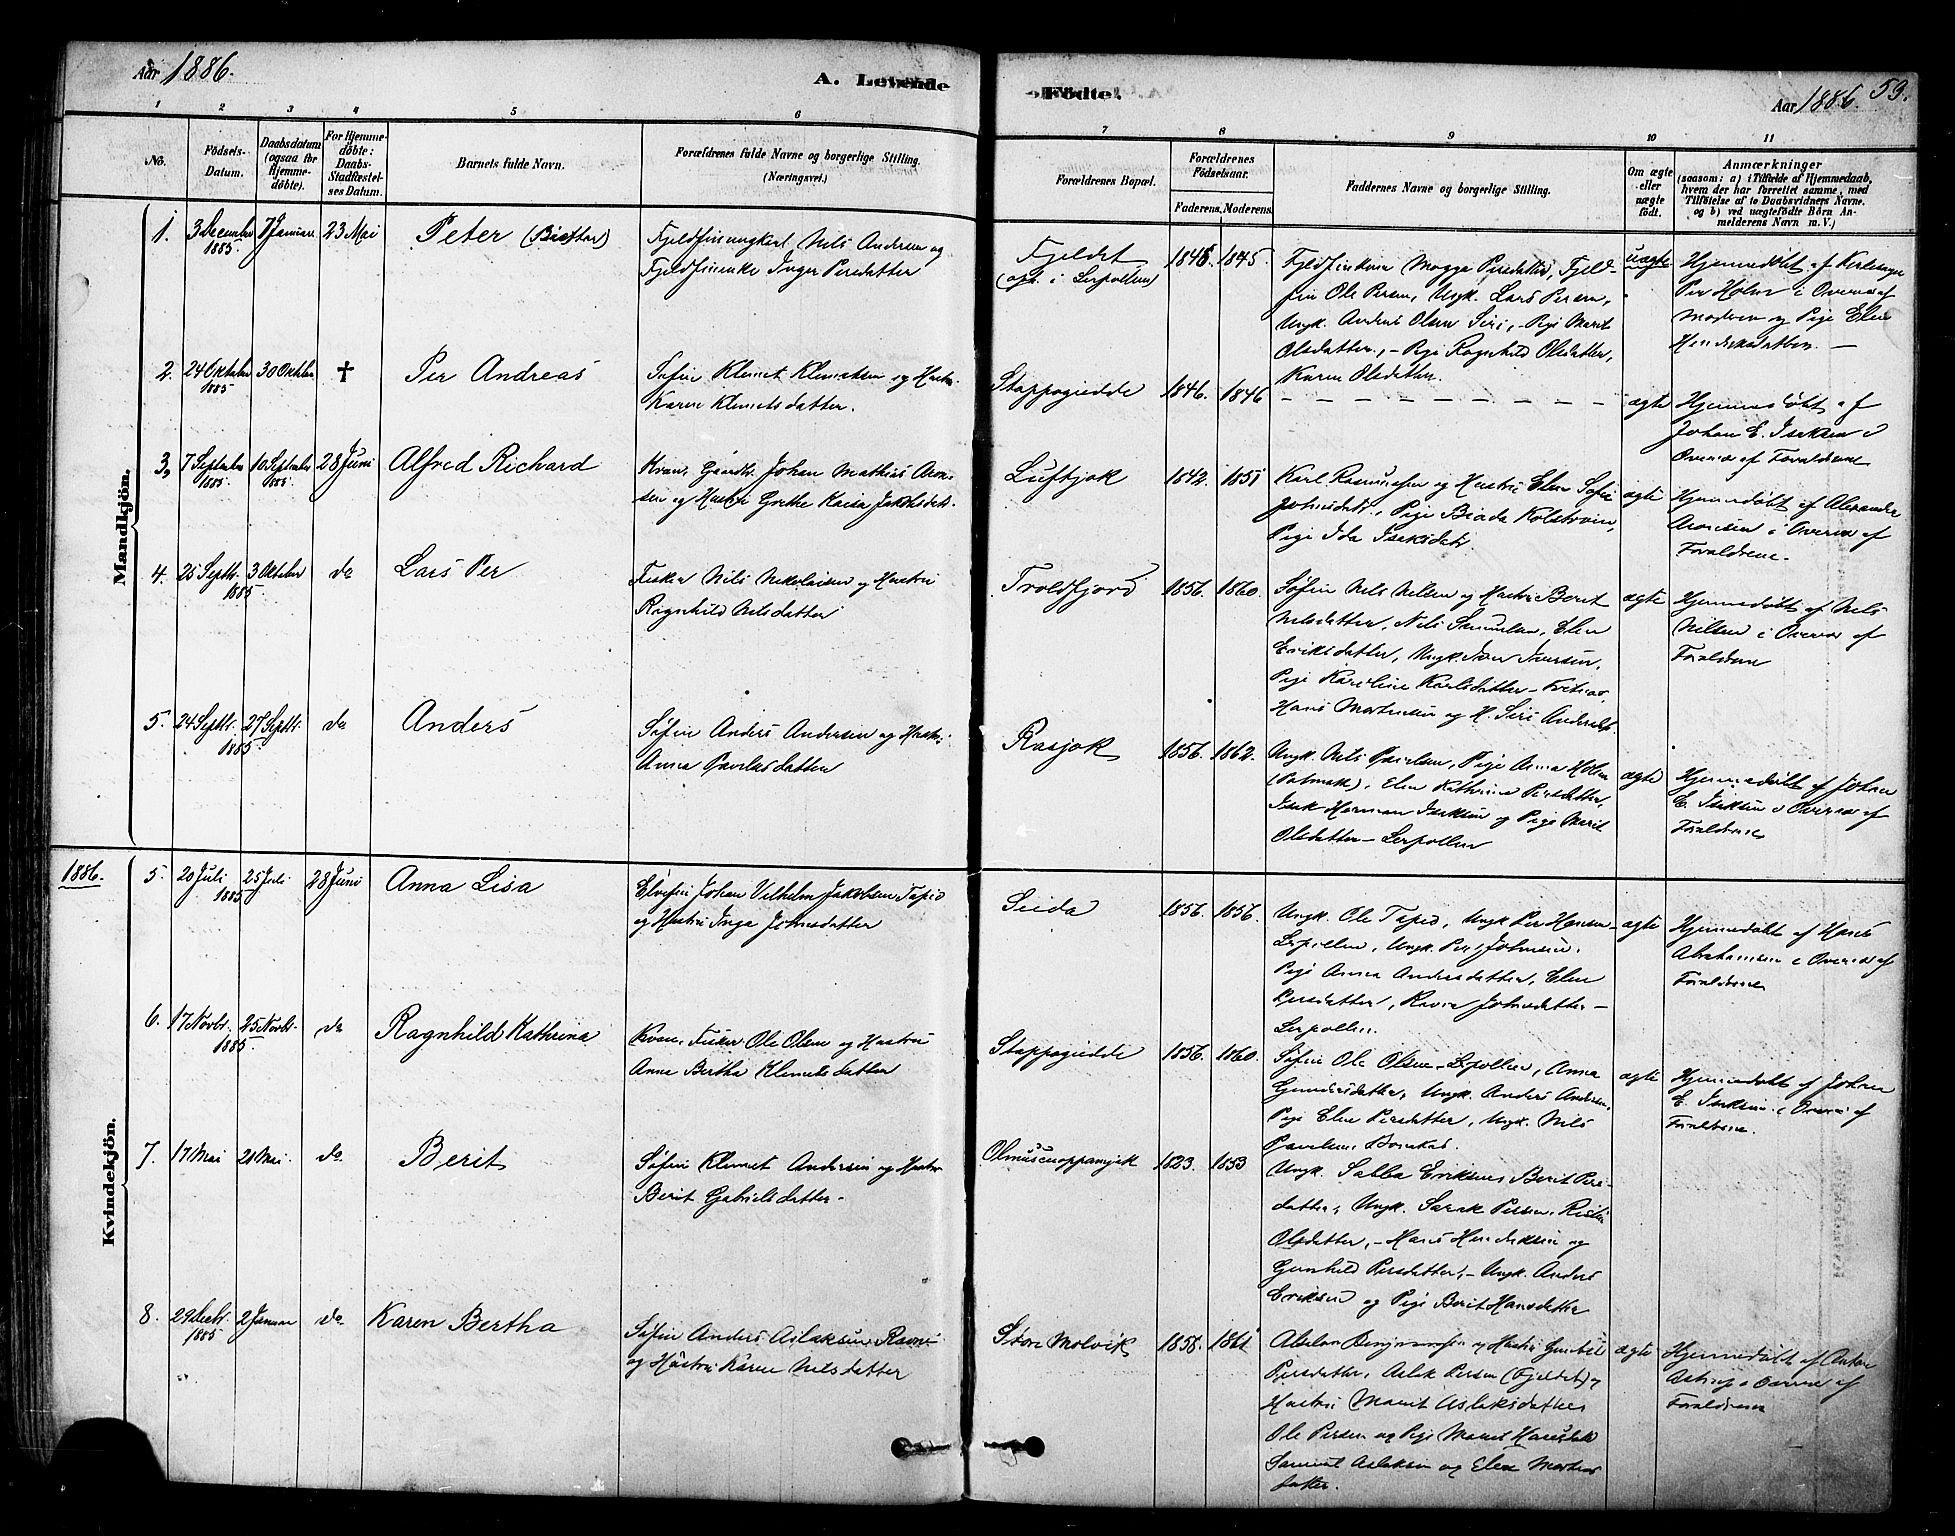 Aar 1886.
A. Levende
Födte.
Aar 1886.
53.
1 2 3 4 5 6 7 8 9 10 11
No.
Födsels-
Datum.
Daabsdatum
(ogsaa for
Hjemme-
døbte).
For Hjemme-
døbte:
Daabs-
Stadfæstel-
ses Datum.
Barnets fulde Navn.
Forældrenes fulde Navne og borgerlige Stilling.
(Næringsvei.)
Forældrenes Bopæl.
Forældrenes
Födselsaar.
Faderens. Moderens.
Faddernes Navne og borgerlige Stilling.
Om ægte
eller
uægte
födt.
Anmærkninger
(saasom: a) i Tilfælde af Hjemmedaab,
hvem der har forrettet samme, med
Tilføielse af to Daabsvidners Navne.
og b) ved uægtefødte Børn An-
melderens Navn m. V.)
Mandkjön.
1. 3 December 1885
7 Januar
23 Mai
Peter (Biettar)
Fjeldfinungkarl Nils Andersen og
Fjeldfinenke Inger Persdatter
Fjeldet
(opt. i Lerpollen)
1845. 1845.
Fjeldfinkone Magga Persdatter, Fjeld-
fin Ole Persen, Ungk. Lars Persen,
Ungk. Anders Olsen Siri, - Pige Marit
Olsdatter, - Pige Ragnhild Olsdatter,
Karen Olsdatter.
uægte
Hjemmedøbt af
Per Holm i Overvær af
Moderen og Pige Elen
Henriksdatter. —
2. 24 Oktober 1885
30 Oktober
†
Per Andreas
Søfin Klemet Klemetsen og Hustru
Karen Klemetsdatter.
Stappogiedde
1846. 1846
— — — — — — — —
ægte
Hjemmedøbt af
Johan E. Isaksen i
Overvær af Forældrene
3, 7 September 1885
10 September 1885
28 Juni
Alfred Richard
Kvæn, Gaardbr. Johan Mathias Aron-
sen og Hustru Grethe Kaisa Jakobsdatt.
Luftjok
1842. 1851
Karl Rasmussen og Hustru Elen Sofie
Johnsdatt., Pige Beada Kolstrøm,
Pige Ida Isaksdatr.
ægte
Hjemmedøbt af Alexander
Aronsen i Overvær af
Forældrene.
4. 25 Septbr. 1885
3 Oktober
da
Lars Per
Fisker Nils Nikolaisen og Hustru
Ragnhild Nilsdatter
Troldfjord
1856. 1860.
Søfin Nils Nilsen og Hustru Berit
Nilsdatter, Nils Samuelsen, Elen
Eriksdatter, Ungk. Iver Iversen,
Pige Karoline Karlsdatter -
Hans Mortensen og H. Siri Andersdt.
ægte
Hjemmedøbt af Nils
Nilsen i Overvær af
Forældrene
5. 24 Septbr. 1885
27 Septbr.
da
Anders
Søfin Anders Andersen og Hustru
Anna Paulusdatter
Rasjok
1856. 1862.
Ungk. Nils Paulsen, Pige Anna Holm
(Polmak), Elen Kathrine Persdatter,
Isak Herman Isaksen og Pige Marit
Olsdatter - Lerpollen
ægte
Hjemmedøbt af Johan
E. Isaksen i Overvær af
Forældrene
1886.
Kvindekjön.
5. 20 Juli 1885
25 Juli
28 Juni
Anna Lisa
Elvefin Johan Vilhelm Jakobsen Tapio
og Hustru Inga Johnsdatter
Seida
1856. 1856.
Ungk. Ole Tapio, Ungk Per Hansen -
Lerpollen, Ungk. Per Johnsen,
Pige Anna Andersdatter, Elen
Persdatter, Johnsdatter -
Lerpollen.
ægte
Hjemmedøbt af Hans
Abrahamsen i Overvær af
Forældrene
6. 17 Novbr. 1885
25 Novbr.
da
Ragnhild Kathrina
Kvæn, Fisker Ole Olsen og Hustru
Anna Bertha Klemetsdatter
Stappogiedde
1856. 1860.
Søfin Ole Olsen - Lerpollen, Anna
Gundersdatter, Ungk. Anders Andersen,
Pige Elen Persdatter, Ungk. Nils
Paulsen,
ægte
Hjemmedøbt af Johan
E. Isaksen i Overvær af
Forældrene.
7. 17 Mai
20 Mai.
da
Berit
Søfin Klemet Andersen og Hustru
Berit Gabrielsdatter -
1823. 1853
Ungk. Sabba Eriksen, Berit Pers-
datter, Ungk. Persen,
Olsdatter, - Hans Hendriksen og
Gunhild Persdatter, - Ungk. Anders
Eriksen og Pige Berit Hansdatter
8. 29 Decbr. 1885
2 Januar
da
Karen Bertha
Søfin Anders Aslaksen Ravna
og Hustru Karen Nilsdatter
Store Molvik
1858. 1861
og Hustru Gunhil
Persdatter, Aslak Persen (Fjeldet) og
Hustru Marit Aslaksdatter
Ole Persen og Pige Marit Hansdatt.
Samuel Aslaksen og Elen Mortens-
datter.
ægte
Hjemmedøbt af Anton
Astrup i Overvær af
Forældrene